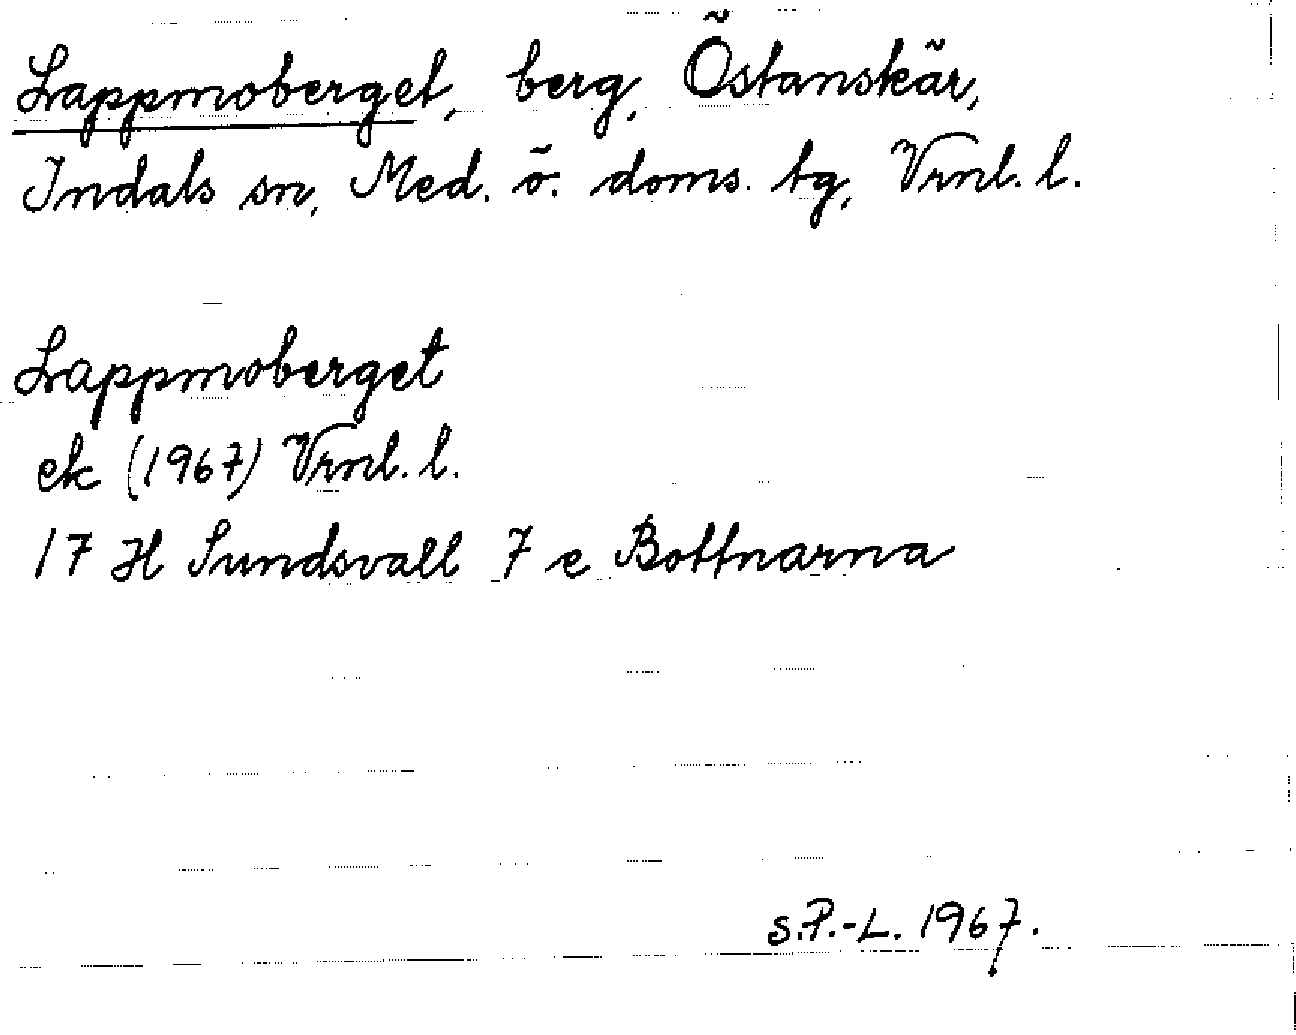 Lappmoberget, berg, Östanskär,
Indals sn, Med. ö. doms. tg, Vrnl. l.
Lappmoberget
ek (1967) Vrnl. l.
17 H Sundsvall 7 e Bottnarna
S.P.-L. 1967.